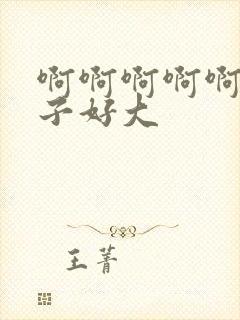 啊啊啊啊啊
子好大
王菁